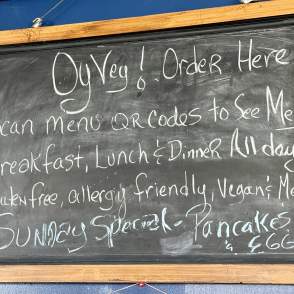 OyVey! Order Here
can menu QR codes to See Me
reakfast, Lunch & Dinner All day
luten free, allergy friendly, Vegan & Me
Sunday Special - Pancakes
& EGG